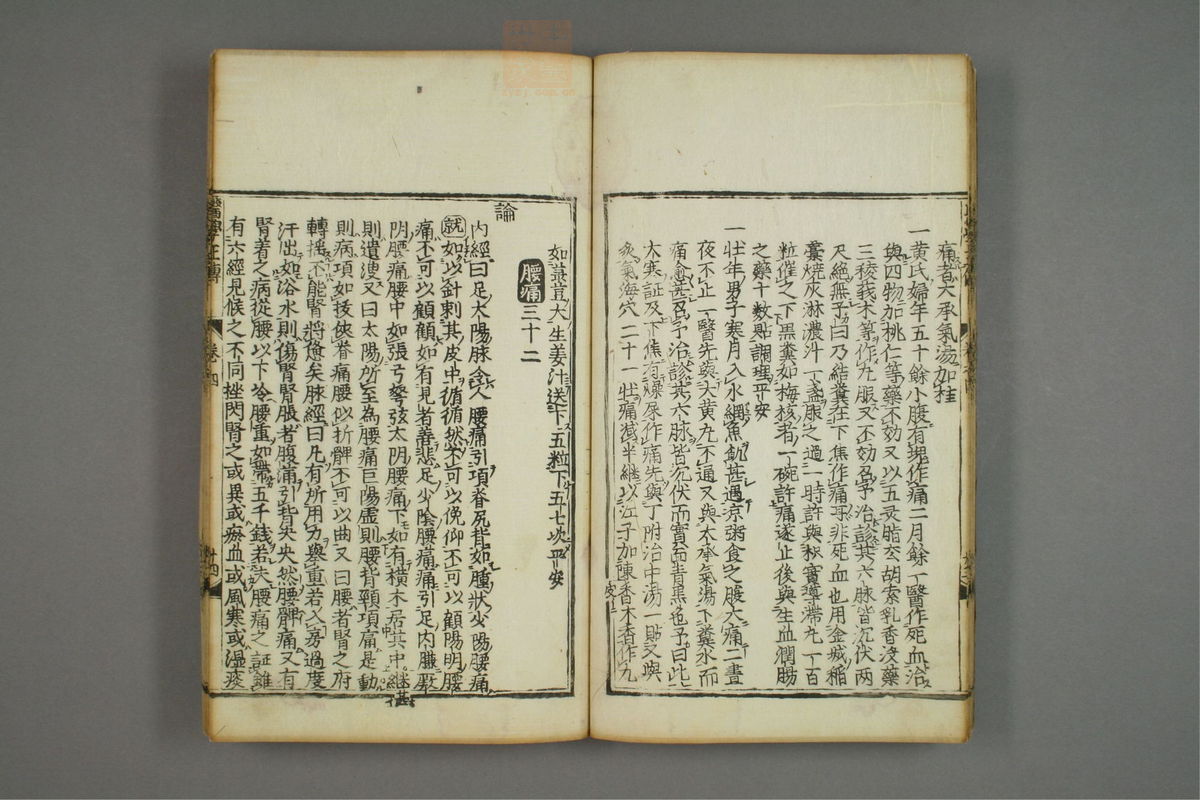 痛者大承氣湯加桂
一黃氏婦年五十餘小腹有塊作痛二月餘一醫作死血治
與四物加桃仁等藥不効又以五灵脂玄胡索乳香沒藥
三稜莪朮等作丸服又不効召予治診其六脉皆沉伏兩
尺絕無予曰乃結糞在下焦作痛耳非死血也用金城稻
藁燒灰淋濃汁一盞服之過一時許與枳實導滯丸一百
粒催之下黑糞如梅核者一碗許痛遂止後與生血潤腸
之藥十数貼調理平安
一壯年男子寒月入水網魚飢甚過凉粥食之腹大痛二晝
夜不止一醫先與大黃丸不通又與大承氣湯下糞水而
痛愈甚召予治診其六脉皆沉伏而實面青黑色予曰此
大寒証及下焦有燥屎作痛先與丁附治中湯一貼又與
灸氣海穴二十一壯痛减半繼以江子加陳香木香作丸
皮
如菉豆大生姜汁送下五粒下五七次平安
腰痛三十二
論
內經曰足太陽脉令人腰痛引項脊尻背如腫狀少陽腰痛
就如以針刺其皮中循循然不可以俛仰不可以顧陽明腰
痛不可以顧顧如有見者善悲足少陰腰痛痛引足內臁厥
阴腰痛腰中如張弓弩弦太阴腰痛下如有橫木居其中甚
則遺溲又曰太陽所至為腰痛巨陽虛則腰背頸項痛是動
則病項如拔俠脊痛腰似折髀不可以曲又曰腰者腎之府
轉搖不能腎將憊矣脉經曰凡有所用力舉重若入房過度
汗出如浴水則傷腎腎脹者腹滿引背央央然腰髀痛又有
腎着之病從腰以下冷腰重如帶五千錢者夫腰痛之証雖
有六經見候之不同挫閃腎之或異或瘀血或風寒或濕痰
醫學正傳
卷四